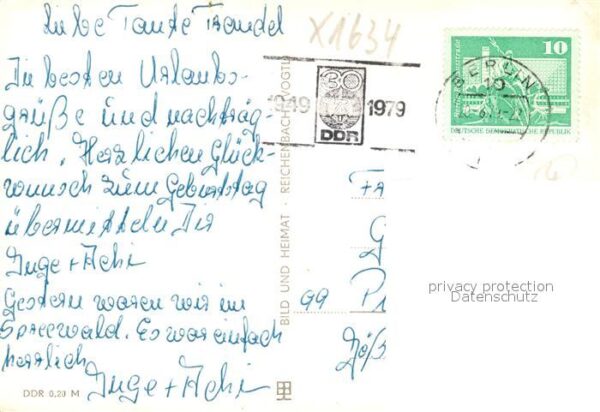 Liebe Tante Traudel
Die besten Urlaubs-
grüße und nachträg-
lich, Herzlichen Glück-
wunsch zum Geburtstag
übermitteln Dir
Inge + Achi
Gestern waren wir im
Spreewald. Es war einfach
herrlich
Inge + Achi
DDR 0,20 M
BILD UND HEIMAT · REICHENBACH (VOGTL
X1634
1949 30 1979
DDR
BERLIN
10
10
DEUTSCHE DEMOKRATISCHE REPUBLIK
Fr
G
99 Pl
privacy protection
Datenschutz